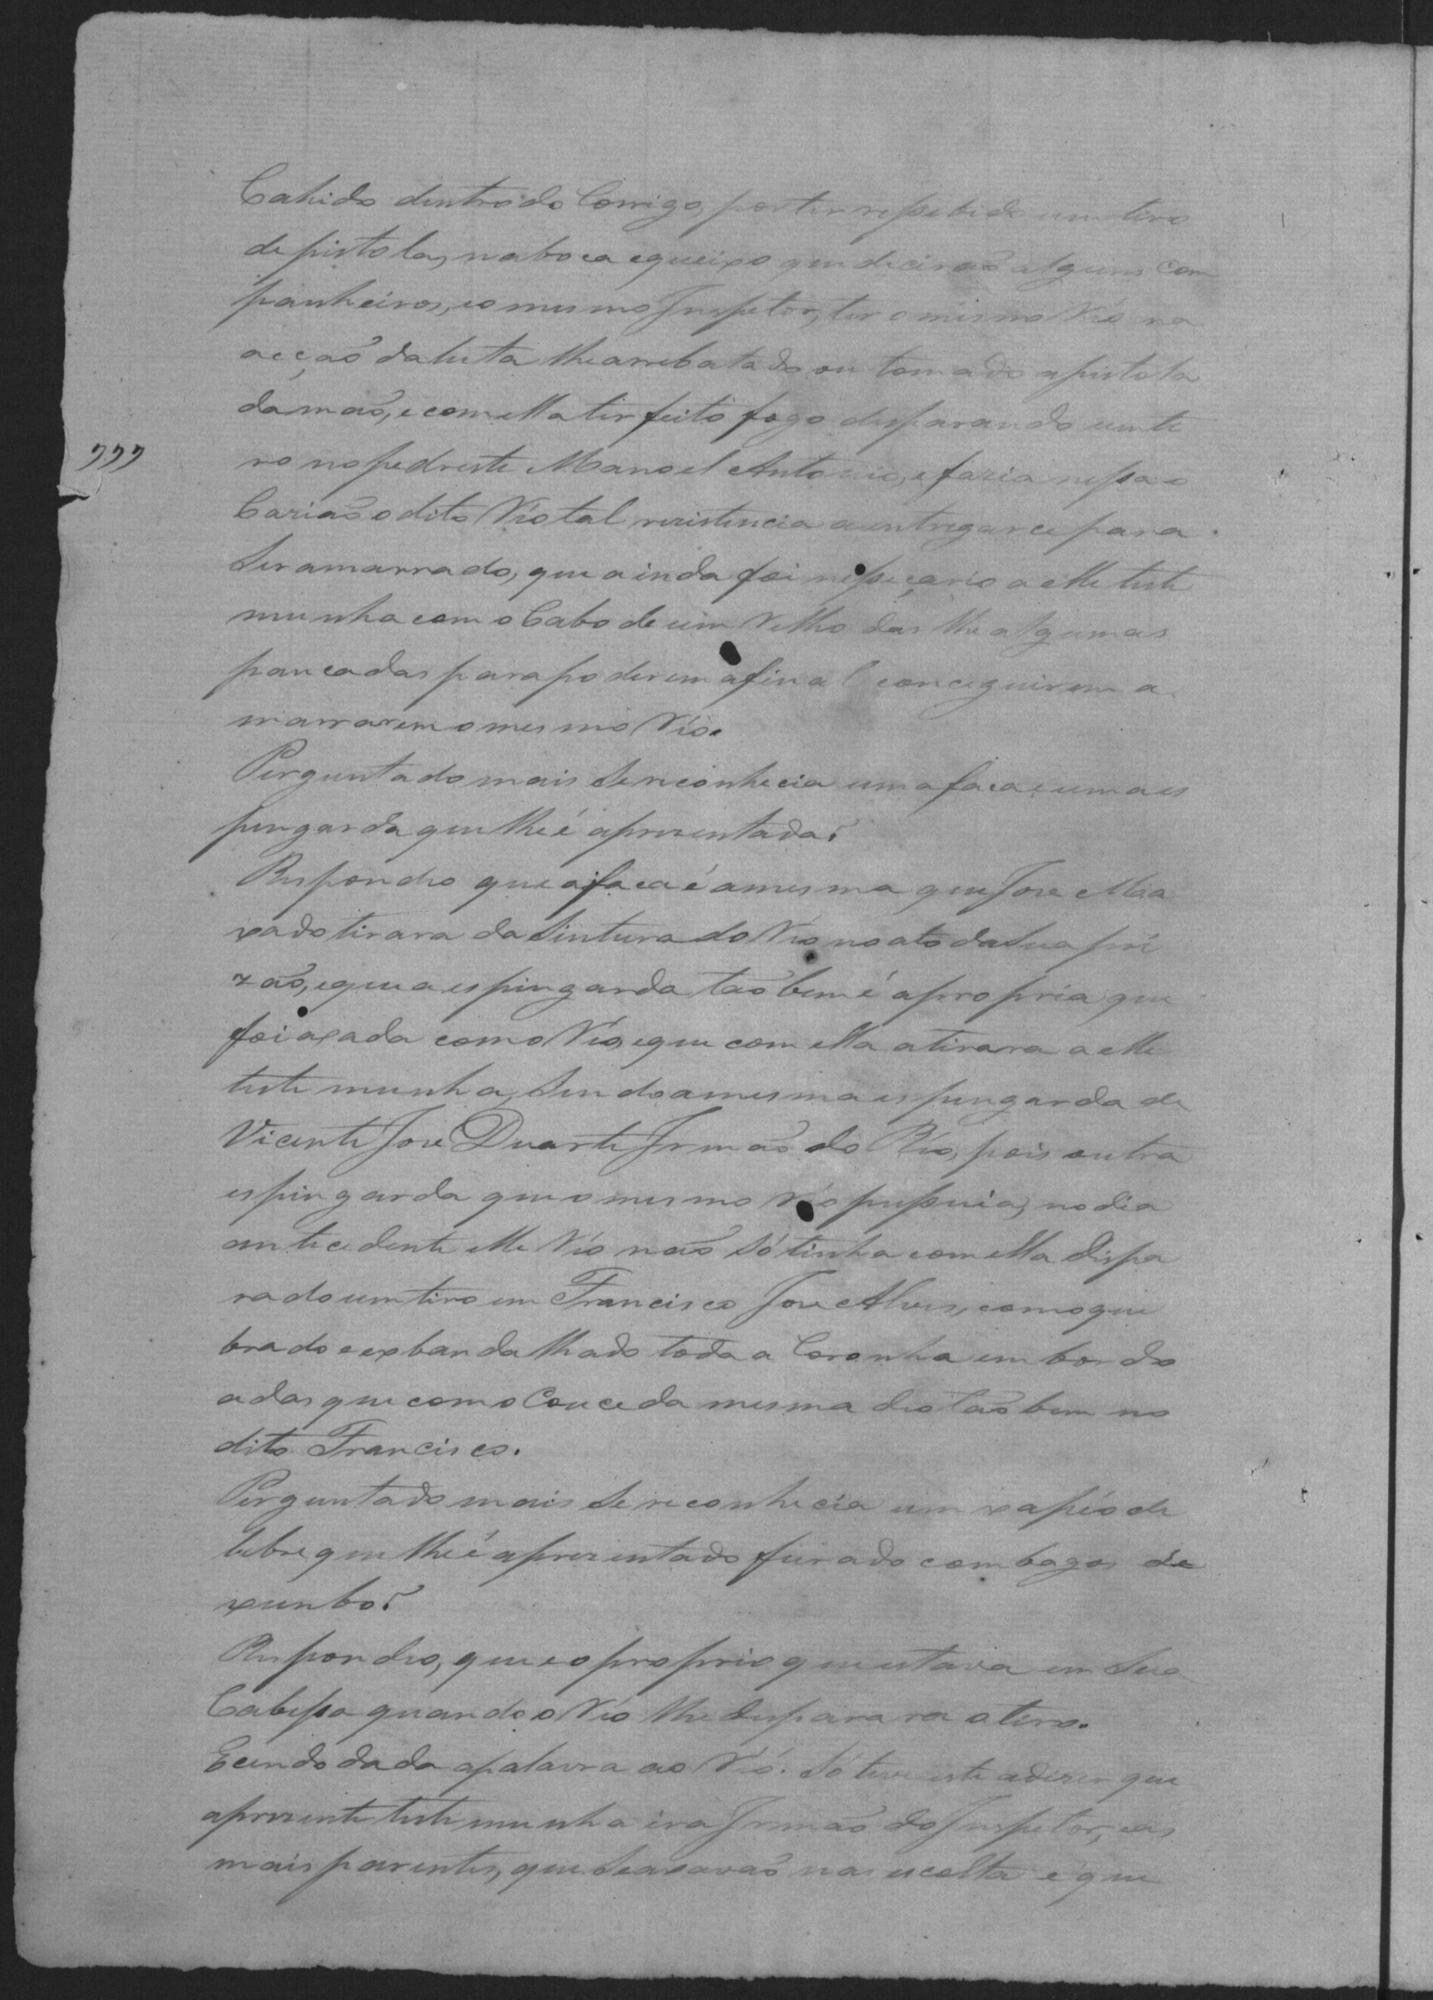 Cahido dentro do Corrigo, por ter recebido um tiro
de pistola, na boca e queixo que dicerão alguns com
panheiros, e o mesmo Inspetor, ter o mesmo Réo na
acção da luta lhe arrebatado ou tomado a pistola
da mão, e com ella ter feito fogo disparando um ti
ro no pedreste Manoel Antonio, e fazia nessa o
cazião o dito Réo tal rezistencia a entregarce para
Ser amarrado, que ainda foi nessecario a elle teste
munha com o Cabo de um relho dar lhe algumas
pancadas para poderem afinal conceguirem a
marrarem o mesmo Réo.
Perguntado mais Se reconhecia uma faca e uma es
pingarda que lhe é aprezentada?
Respondeo que a faca é a mesma que Jose Maxa
xado tirara da Sintura do Réo no ato da Sua pri
zão, e que a espingarda tão bem é a propria que
foi axada com o Réo, e que com ella atirara a elle
teste munha, Sendo a mesma espingarda de
Vicente Jose Duarte Irmão do Réo, pois outra
espingarda que o mesmo Réo pussuia, no dia
antecedente elle Réo não Só tinha com ella dispa
rado um tiro em Francisco Jose Alves, como que
brado e exbandalhado toda a Coronha em bordo
adas que com o Couce da mesma deo tão bem no
dito Francisco.
Perguntado mais Se reconhecia um xapéo de
lebre que lhe é aprezentado furado com bagos de
xumbo?
Respondeo, que é o proprio que estava em Sua
Cabessa quando o Réo lhe disparara o tiro.
E cendo dada a palavra ao Réo. Só teve este a dizer que
a prezente teste munha era Irmão do Inspetor, e os
mais parentes, que Se axavão na escolta e que